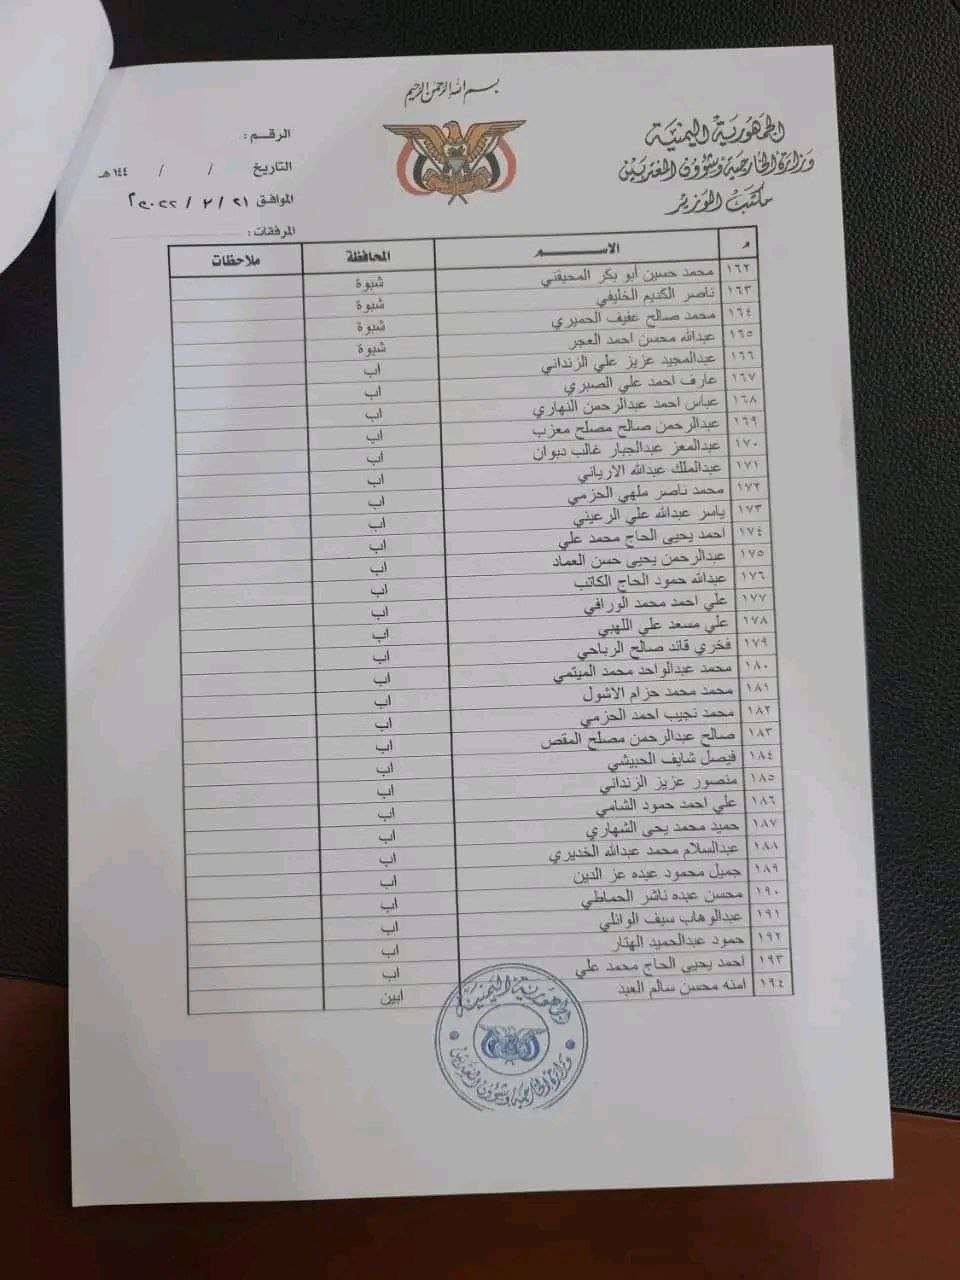 بسم الله الرحمن الرحيم
الجمهورية اليمنية
وزارة الخارجية وشؤون المغتربين
مكتب الوزير
الرقم :
التاريخ / / ١٤٤هـ
الموافق ٢١ / ٢ / ٢٠٢٢م
المرفقات :
م الاسم المحافظة ملاحظات
١٦٢ محمد حسين أبو بكر المحيقني شبوة
١٦٣ ناصر الكنيم الخليفي شبوة
١٦٤ محمد صالح عفيف الحميري شبوة
١٦٥ عبدالله محسن احمد العجر شبوة
١٦٦ عبدالمجيد عزيز علي الزنداني اب
١٦٧ عارف احمد علي الصبري اب
١٦٨ عباس احمد عبدالرحمن النهاري اب
١٦٩ عبدالرحمن صالح مصلح معزب اب
١٧٠ عبدالمعز عبدالجبار غالب دبوان اب
١٧١ عبدالملك عبدالله الارياني اب
١٧٢ محمد ناصر ملهي الحزمي اب
١٧٣ ياسر عبدالله علي الرعيني اب
١٧٤ احمد يحيى الحاج محمد علي اب
١٧٥ عبدالرحمن يحيى حسن العماد اب
١٧٦ عبدالله حمود الحاج الكاتب اب
١٧٧ علي احمد محمد الورافي اب
١٧٨ علي مسعد علي اللهبي اب
١٧٩ فخري قائد صالح الرباحي اب
١٨٠ محمد عبدالواحد محمد الميتمي اب
١٨١ محمد محمد حزام الاشول اب
١٨٢ محمد نجيب احمد الحزمي اب
١٨٣ صالح عبدالرحمن مصلح المقص اب
١٨٤ فيصل شايف الحبيشي اب
١٨٥ منصور عزيز الزنداني اب
١٨٦ علي احمد حمود الشامي اب
١٨٧ حميد محمد يحى الشهاري اب
١٨٨ عبدالسلام محمد عبدالله الخديري اب
١٨٩ جميل محمود عبده عز الدين اب
١٩٠ محسن عبده ناشر الحماطي اب
١٩١ عبدالوهاب سيف الوائلي اب
١٩٢ حمود عبدالحميد الهتار اب
١٩٣ احمد يحيى الحاج محمد علي اب
١٩٤ امنه محسن سالم العبد ابين
الجمهورية اليمنية
وزارة الخارجية وشؤون المغتربين